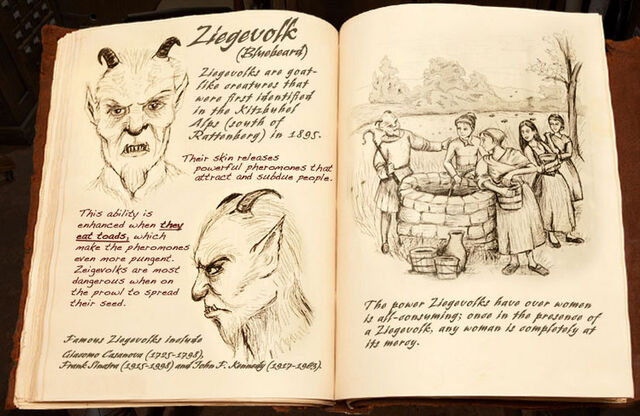 Ziegevolk
(Bluebeard)
Ziegevolks are goat-
like creatures that
were first identified
in the Kitzbuhel
Alps (south of
Rattenberg) in 1895.
Their skin releases
powerful pheromones that
attract and subdue people.
This ability is
enhanced when they
eat toads, which
make the pheromones
even more pungent.
Zeigevolks are most
dangerous when on
the prowl to spread
their seed.
Famous Ziegevolks include
Giacomo Casanova (1725-1798),
Frank Sinatra (1915-1998) and John F. Kennedy (1917-1963).
The power Ziegevolks have over women
is all-consuming; once in the presence of
a Ziegevolk, any woman is completely at
its mercy.